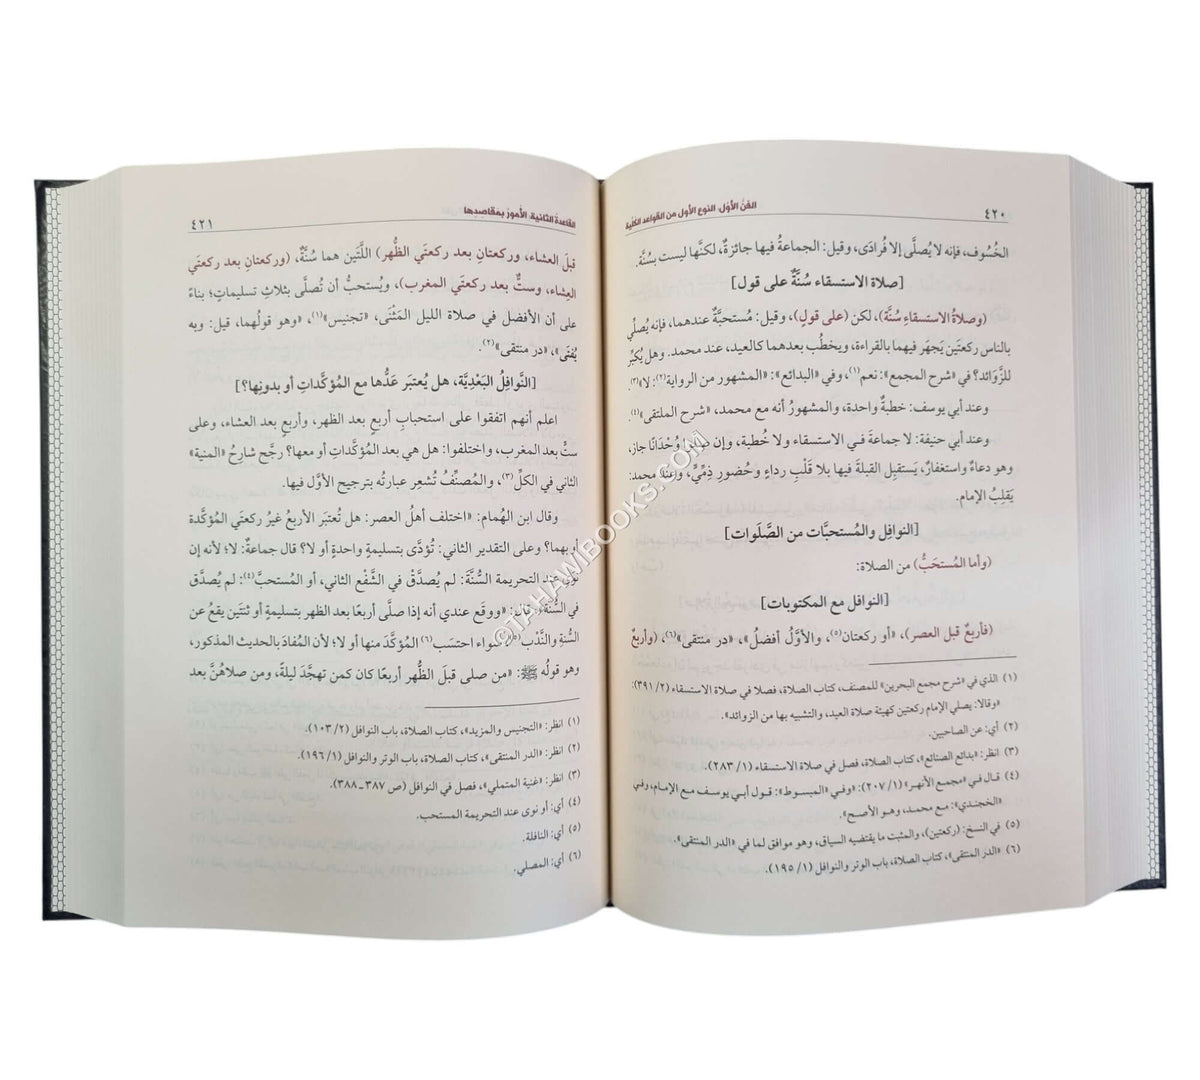 ٤٢٠
الفن الأول، النوع الأول من القواعد الكلية
الخُسُوف، فإنه لا يُصلَّى إلا فُرادَى، وقيل: الجماعة فيها جائزةٌ، لكنَّها ليست بسُنَّة.
[صلاة الاستسقاء سُنَّةٌ على قول]
(وصلاةُ الاستسقاءِ سُنَّة)، لكن (على قولٍ)، وقيل: مُستحبَّةٌ عندهما، فإنه يُصلِّي
بالناس ركعتَين يَجهَر فيهما بالقراءة، ويخطُب بعدهما كالعيد، عند محمد. وهل يُكبِّر
للزَّوائد؟ في «شرح المجمع»: نعم(١)، وفي «البدائع»: «المشهور من الرواية(٢): لا»(٣).
وعند أبي يوسف: خطبةٌ واحدة، والمشهورُ أنه مع محمد، «شرح الملتقى»(٤).
وعند أبي حنيفة: لا جماعةَ في الاستسقاء ولا خُطبة، وإن صلَّوا وُحْدَانًا جاز،
وهو دعاءٌ واستغفارٌ، يَستقبِل القبلةَ فيها بلا قَلْبِ رداءٍ وحُضورِ ذِمِّيٍّ، وعند محمد:
يَقلِبُ الإمام.
[النوافل والمُستحبَّات من الصَّلَوات]
(وأما المُستحَبُّ) من الصلاة:
[النوافل مع المكتوبات]
(فأربعٌ قبل العصر)، «أو ركعتان(٥)، والأوَّلُ أفضلُ»، «در منتقى»(٦)، (وأربعٌ
(١) الذي في «شرح مجمع البحرين» للمصنف، كتاب الصلاة، فصلا في صلاة الاستسقاء (٢/ ٣٩١):
«وقالا: يصلي الإمام ركعتين كهيئة صلاة العيد، والتشبيه بها من الزوائد».
(٢) أي: عن الصاحبين.
(٣) انظر: «بدائع الصنائع»، كتاب الصلاة، فصل في صلاة الاستسقاء (١/ ٢٨٣).
(٤) قال في «مجمع الأنهر» (١/ ٢٠٧): «وفي «المبسوط»: قول أبي يوسف مع الإمام، وفي
«الخجندي»: مع محمد، وهو الأصح».
(٥) في النسخ: (ركعتين)، والمثبت ما يقتضيه السياق، وهو موافق لما في «الدر المنتقى».
(٦) «الدر المنتقى»، كتاب الصلاة، باب الوتر والنوافل (١/ ١٩٥).
القاعدة الثانية، الأمور بمقاصدها
٤٢١
قبلَ العشاء، وركعتانِ بعد ركعتَي الظُّهر) اللَّتَين هما سُنَّةٌ، (وركعتانِ بعد ركعتَي
العِشاء، وستٌّ بعد ركعتَي المغرب)، ويُستحبُّ أن تُصلَّى بثلاثِ تسليماتٍ؛ بناءً
على أن الأفضل في صلاة الليل المَثْنَى، «تجنيس»(١)، «وهو قولُهما، قيل: وبه
يُفتَى»، «در منتقى»(٢).
[النَّوافِلُ البَعْدِيَّة، هل يُعتبَر عَدُّها مع المُؤكَّداتِ أو بدونِها؟]
اعلم أنهم اتفقوا على استحبابِ أربعٍ بعد الظهر، وأربعٍ بعد العشاء، وعلى
ستٍّ بعد المغرب، واختلفوا: هل هي بعد المُؤكَّداتِ أو معها؟ رجَّح شارحُ «المنية»
الثاني في الكلِّ(٣)، والمُصنِّفُ تُشعِر عبارتُه بترجيح الأوَّل فيها.
وقال ابن الهُمام: «اختلف أهلُ العصر: هل تُعتبَر الأربعُ غيرُ ركعتَي المُؤكَّدة
أو بهما؟ وعلى التقدير الثاني: تُؤدَّى بتسليمةٍ واحدةٍ أو لا؟ قال جماعةٌ: لا؛ لأنه إن
نوى عند التحريمة السُّنَّةَ: لم يُصدَّقْ في الشَّفْع الثاني، أو المُستحبَّ(٤): لم يُصدَّق
في السُّنَّة»، قال: «ووقع عندي أنه إذا صلَّى أربعًا بعد الظهر بتسليمةٍ أو ثنتَين يقعُ عن
السُّنةِ والنَّدْب(٥)، سواء احتسَب(٦) المُؤكَّدَ منها أو لا؛ لأن المُفادَ بالحديث المذكور،
وهو قولُه ﷺ: «من صلى قبلَ الظُّهر أربعًا كان كمن تهجَّدَ ليلةً، ومن صلاهُنَّ بعد
(١) انظر: «التجنيس والمزيد»، كتاب الصلاة، باب النوافل (٢/ ١٠٣).
(٢) انظر: «الدر المنتقى»، كتاب الصلاة، باب الوتر والنوافل (١/ ١٩٦).
(٣) انظر: «غنية المتملي»، فصل في النوافل (ص ٣٨٧ـ ٣٨٨).
(٤) أي: أو نوى عند التحريمة المستحب.
(٥) أي: النافلة.
(٦) أي: المصلي.
©TAHAWIBOOKS.COM